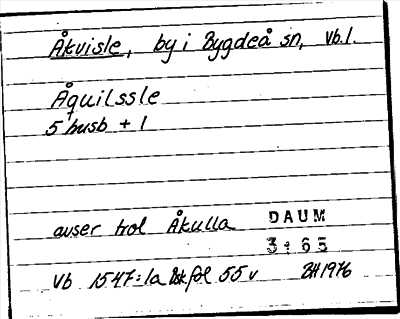 Åkvisle, by i Bygdeå sn, Vb.l.
Åquilssle
5 husb + 1
avser trol Åkulla
DAUM
3:65
Vb 1547:1a Bskfol 55 v BH 1976